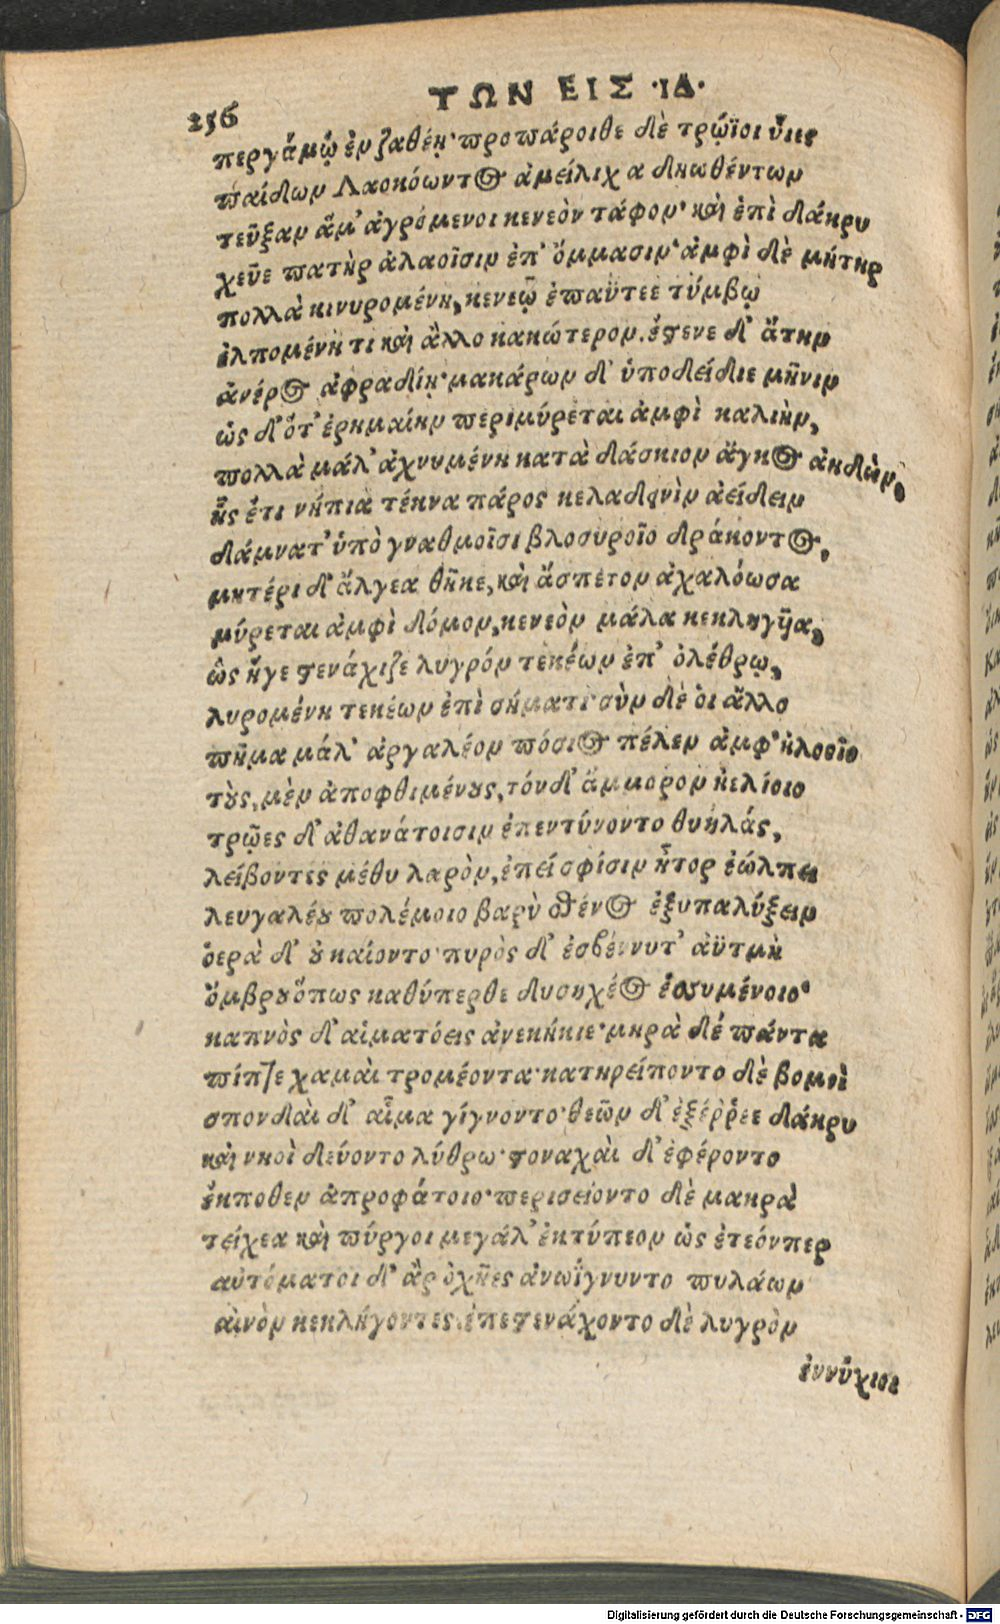 ΤΩΝ ΕΙΣ ·ΙΔ·
256
περγάμῳ ἐν ζαθέῃ· προπάροιθε δὲ τρώϊοι ὗιες
παίδων Λαοκόωντος ἀμείλιχα δῃωθέντων
τεῦξαν ἅμ' ἀγρόμενοι κενεὸν τάφον· καὶ ἐπὶ δάκρυ
χεῦε πατὴρ ἀλαοῖσιν ἐπ' ὄμμασιν· ἀμφὶ δὲ μήτηρ
πολλὰ κινυρομένη, κενεῷ ἐπαΰτεε τύμβῳ
ἐλπομένη τι καὶ ἄλλο κακώτερον. ἔστενε δ' ἄτην
ἀνέρος ἀφραδίῃ· μακάρων δ' ὑποδείδιε μῆνιν
ὡς δ' ὅτ' ἐρημαίην περιμύρεται ἀμφὶ καλιὴν,
πολλὰ μάλ' ἀχνυμένη κατὰ δάσκιον ἄγκος ἀηδὼν,
ἧς ἔτι νήπια τέκνα πάρος κελαδεινὸν ἀείδειν
δάμνατ' ὑπὸ γναθμοῖσι βλοσυροῖο δράκοντος,
μητέρι δ' ἄλγεα θῆκε, καὶ ἄσπετον ἀχαλόωσα
μύρεται ἀμφὶ δόμον, κενεὸν μάλα κεκληγῦια,
ὣς ἥγε στενάχιζε λυγρόν τεκέων ἐπ' ὀλέθρῳ,
λυρομένη τεκέων ἐπὶ σήματι· σὺν δὲ ὁι ἄλλο
πῆμα μάλ' ἀργαλέον πόσιος πέλεν ἀμφ' ἠλοοῖο
τοὺς, μὲν ἀποφθιμένους, τόνδ' ἄμμορον ἠελίοιο
τρῶες δ' ἀθανάτοισιν ἐπεντύνοντο θυηλάς,
λείβοντες μέθυ λαρὸν, ἐπείσφίσιν ἦτορ ἐώλπει
λευγαλέου πολέμοιο βαρὺ σθένος ἐξυπαλύξειν
ὁερὰ δ' οὐ καίοντο· πυρὸς δ' ἐσβέννυτ' ἀϋτμὴ
ὄμβρου ὅπως καθύπερθε δυσηχέος ἐσσυμένοιο·
καπνὸς δ' αἱματόεις ἀνεκήκιε· μηρὰ δέ πάντα
πίπτε χαμαὶ τρομέοντα· κατηρείποντο δὲ βομοὶ
σπονδαὶ δ' αἷμα γίγνοντο· θεῶν δ' ἐξέρρεε δάκρυ
καὶ νηοὶ δεύοντο λύθρω· στοναχαὶ δ' ἐφέροντο
ἔκποθεν ἀπροφάτοιο· περισείοντο δὲ μακρὰ
τείχεα καὶ πύργοι μεγάλ' ἐκτύπεον ὡς ἐτεόνπερ
αὐτόματοι δ' ἂρ ὀχῆες ἀνωίγνυντο πυλάων
αἰνὸν κεκλήγοντες. ἐπεστενάχοντο δὲ λυγρὸν
ἐννύχιοι
Digitalisierung gefördert durch die Deutsche Forschungsgemeinschaft - DFG